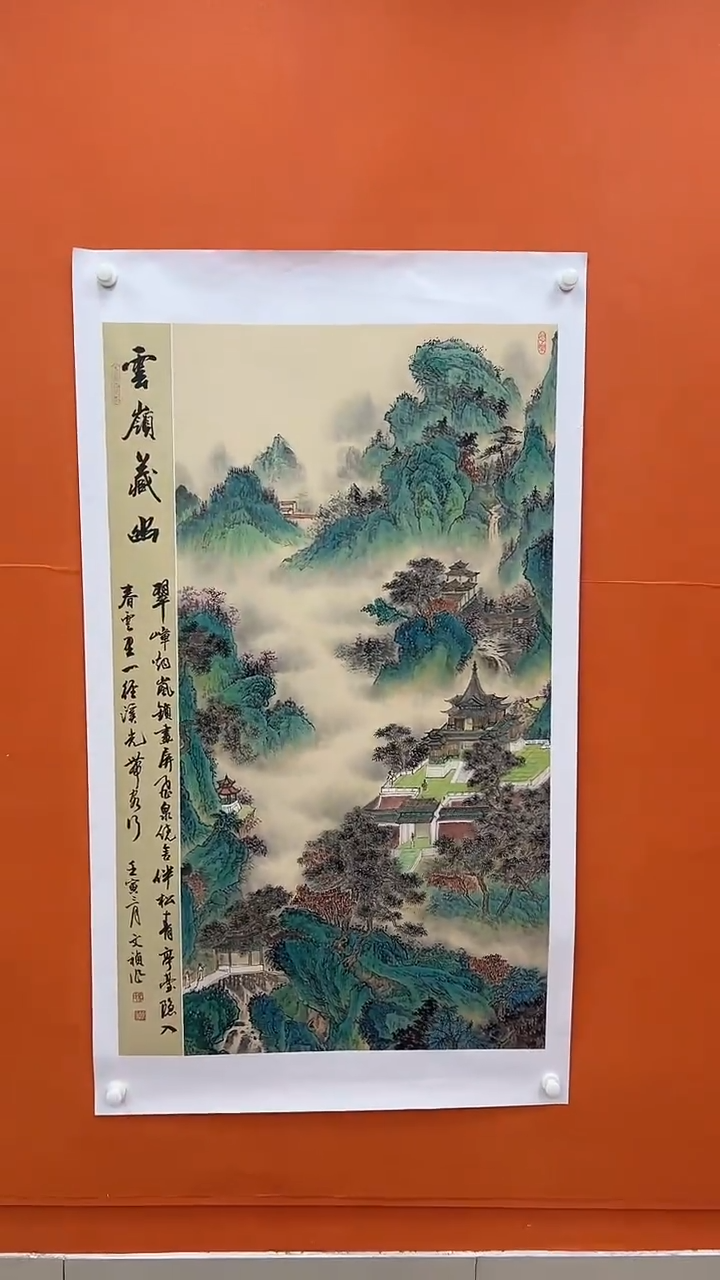 雲嶺藏幽
翠嶂烟嵐鎖畫屏飛泉繞舍伴松青亭臺隐入
春雲里一徑溪光帶客行
壬寅三月文禎作